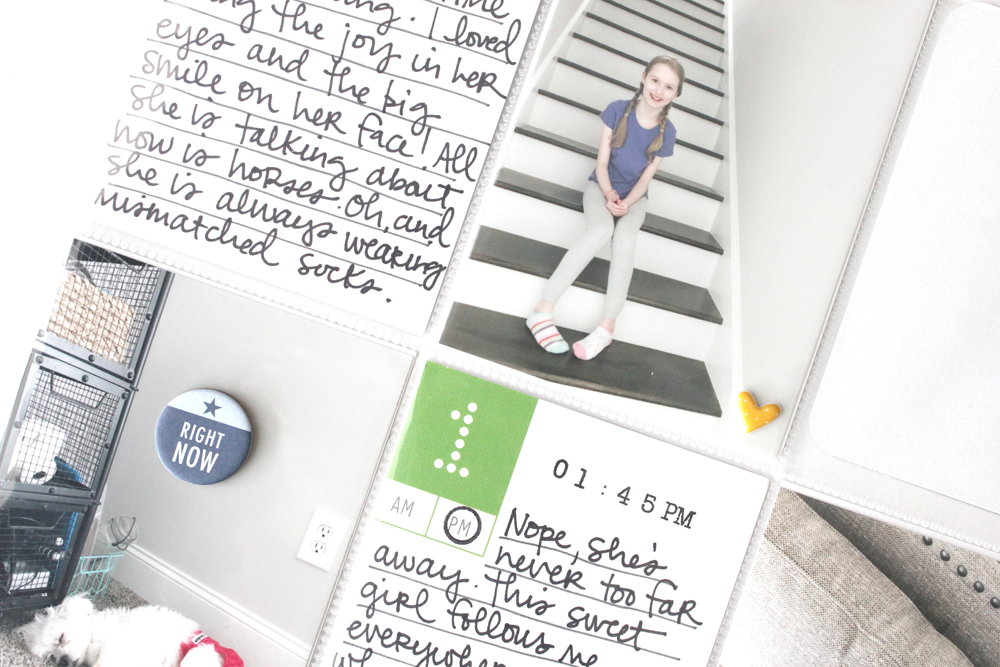 the joy in her
eyes and the big
smile on her face! All
she is talking about
now is horses. Oh, and
she is always wearing
mismatched socks.
RIGHT
NOW
1
AM
PM
01:45 PM
Nope, she's
never too far
away. This sweet
girl follows me
everywhere